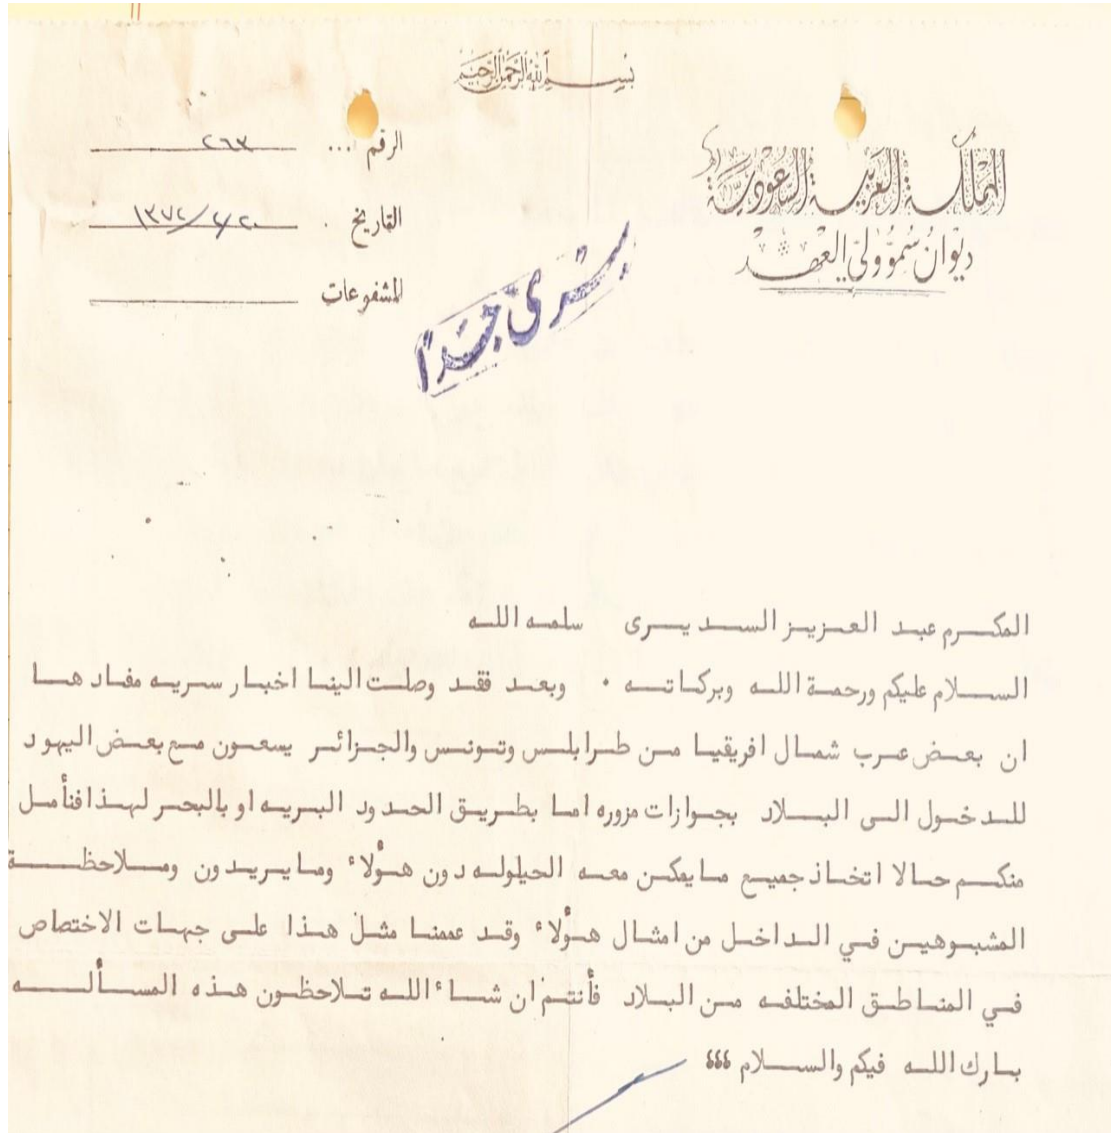 بسم الله الرحمن الرحيم
المملكة العربية السعودية
ديوان سمو ولي العهد
الرقم ... ٢٦٣
التاريخ ٢٠/٤/١٣٧٢
المشفوعات
سري جدًا
المكرم عبد العزيز السديرى سلمه الله
السلام عليكم ورحمة الله وبركاته ٠ وبعد فقد وصلت الينا اخبار سريه مفاد ها
ان بعض عرب شمال افريقيا من طرابلس وتونس والجزائر يسعون مع بعض اليهود
للدخول الى البلاد بجوازات مزوره اما بطريق الحدود البريه او بالبحر لهذا فنأمل
منكم حالا اتخاذ جميع مايمكن معه الحيلوله دون هؤلاء ومايريدون وملاحظة
المشبوهين في الداخل من امثال هؤلاء وقد عممنا مثل هذا على جهات الاختصاص
في المناطق المختلفه من البلاد فأنتم ان شاء الله تلاحظون هذه المسأله
بارك الله فيكم والسلام ،،،